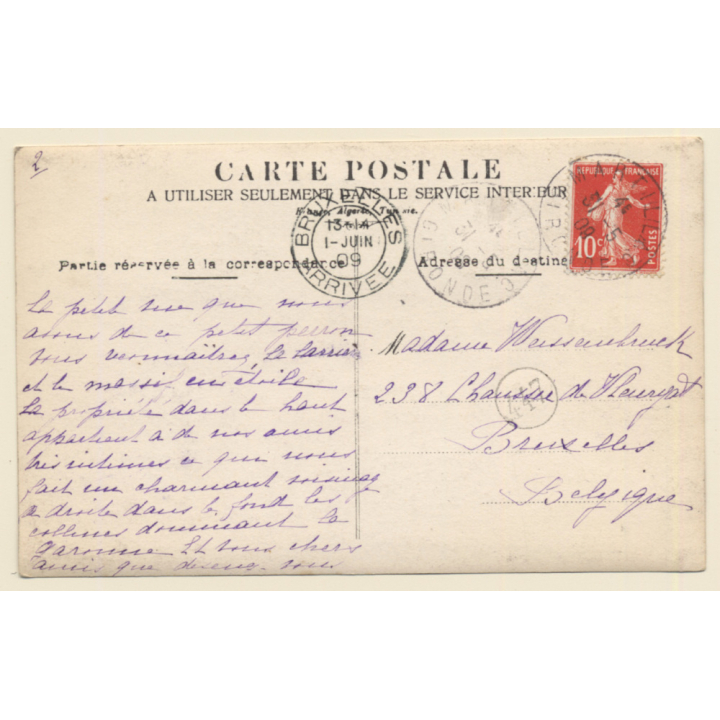 2
CARTE POSTALE
A UTILISER SEULEMENT DANS LE SERVICE INTERIEUR
Algérie, Tunisie.
BRUXELLES
13-14
1-JUIN
09
ARRIVÉE
GIRONDE
RÉPUBLIQUE FRANÇAISE
10c
POSTES
Partie réservée à la correspondence
Adresse du destina
La petite vue que nous
avons de ce petit perron
vous reconnaîtrez
et le massif en étoile
La propriété dans le haut
appartient à de nos amis
très intimes ce que nous
fait un charmant voisinage
a droite dans le fond les
collines dominant la
Garonne Et vous chers
amis que devenez-vous
Madame Weissenbruck
238 Chaussée de Vleurgat
Bruxelles
Belgique